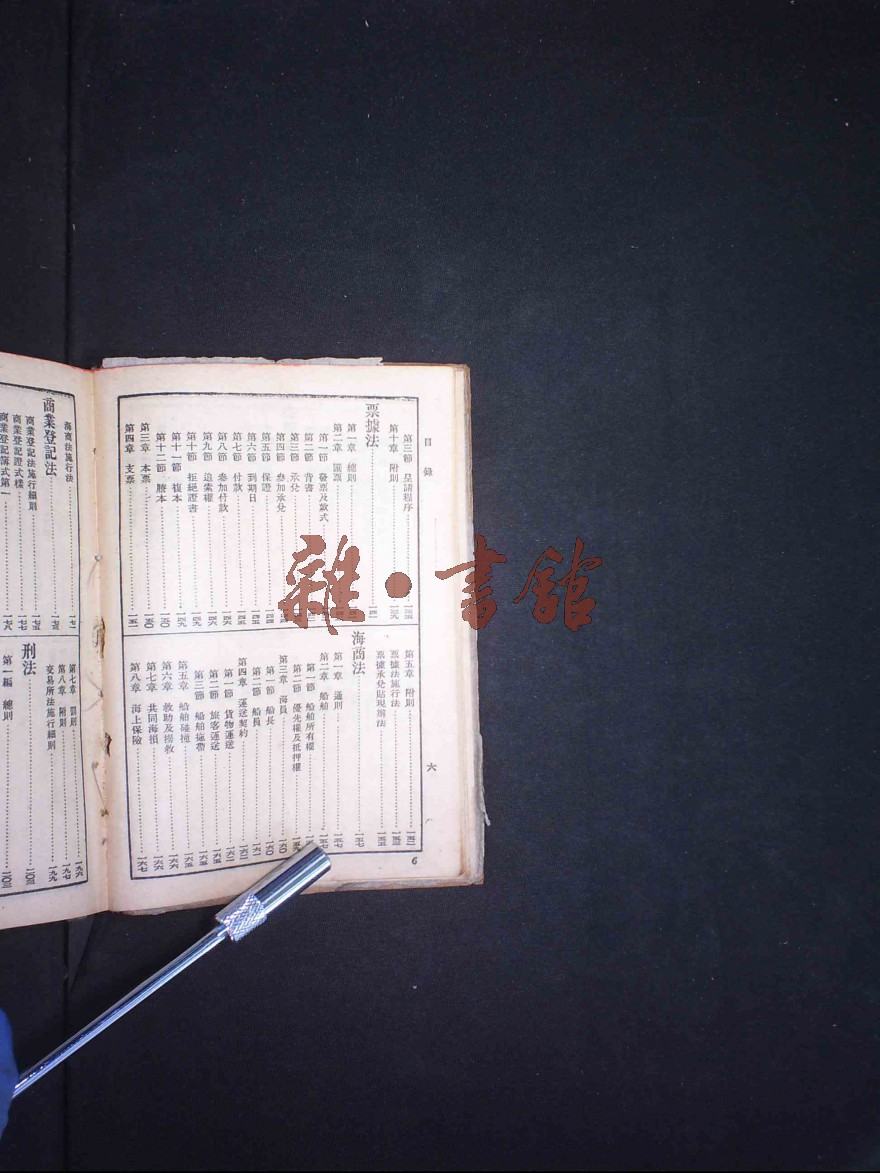 目錄
六
第三節 呈請程序 一三五
第十章 附則 一三九
票據法 一四一
第一章 總則
第二章 匯票
第一節 發票及款式
第二節 背書
第三節 承兌
第四節 參加承兌
第五節 保證
第六節 到期日
第七節 付款
第八節 參加付款
第九節 追索權
第十節 拒絕證書
第十一節 複本
第十二節 謄本 一五〇
第三章 本票 一五〇
第四章 支票 一五一
第五章 附則 一五二
票據法施行法 一五三
票據承兌貼現辦法 一五五
海商法 一五七
第一章 通則 一五七
第二章 船舶 一五七
第一節 船舶所有權
第二節 優先權及抵押權
第三章 海員 一六〇
第一節 船長 一六〇
第二節 船員 一六一
第四章 運送契約 一六二
第一節 貨物運送 一六二
第二節 旅客運送 一六五
第三節 船舶拖帶 一六五
第五章 船舶碰撞 一六五
第六章 救助及撈救 一六六
第七章 共同海損 一六六
第八章 海上保險 一六七
6
海商法施行法 一七一
商業登記法 一七三
商業登記法施行細則 一七五
商業登記證式樣
商業登記簿式第一 一七八
第七章 罰則 一九六
第八章 附則 一九七
交易所法施行細則 一九九
刑法 二〇三
第一編 總則 二〇三
雜·書館